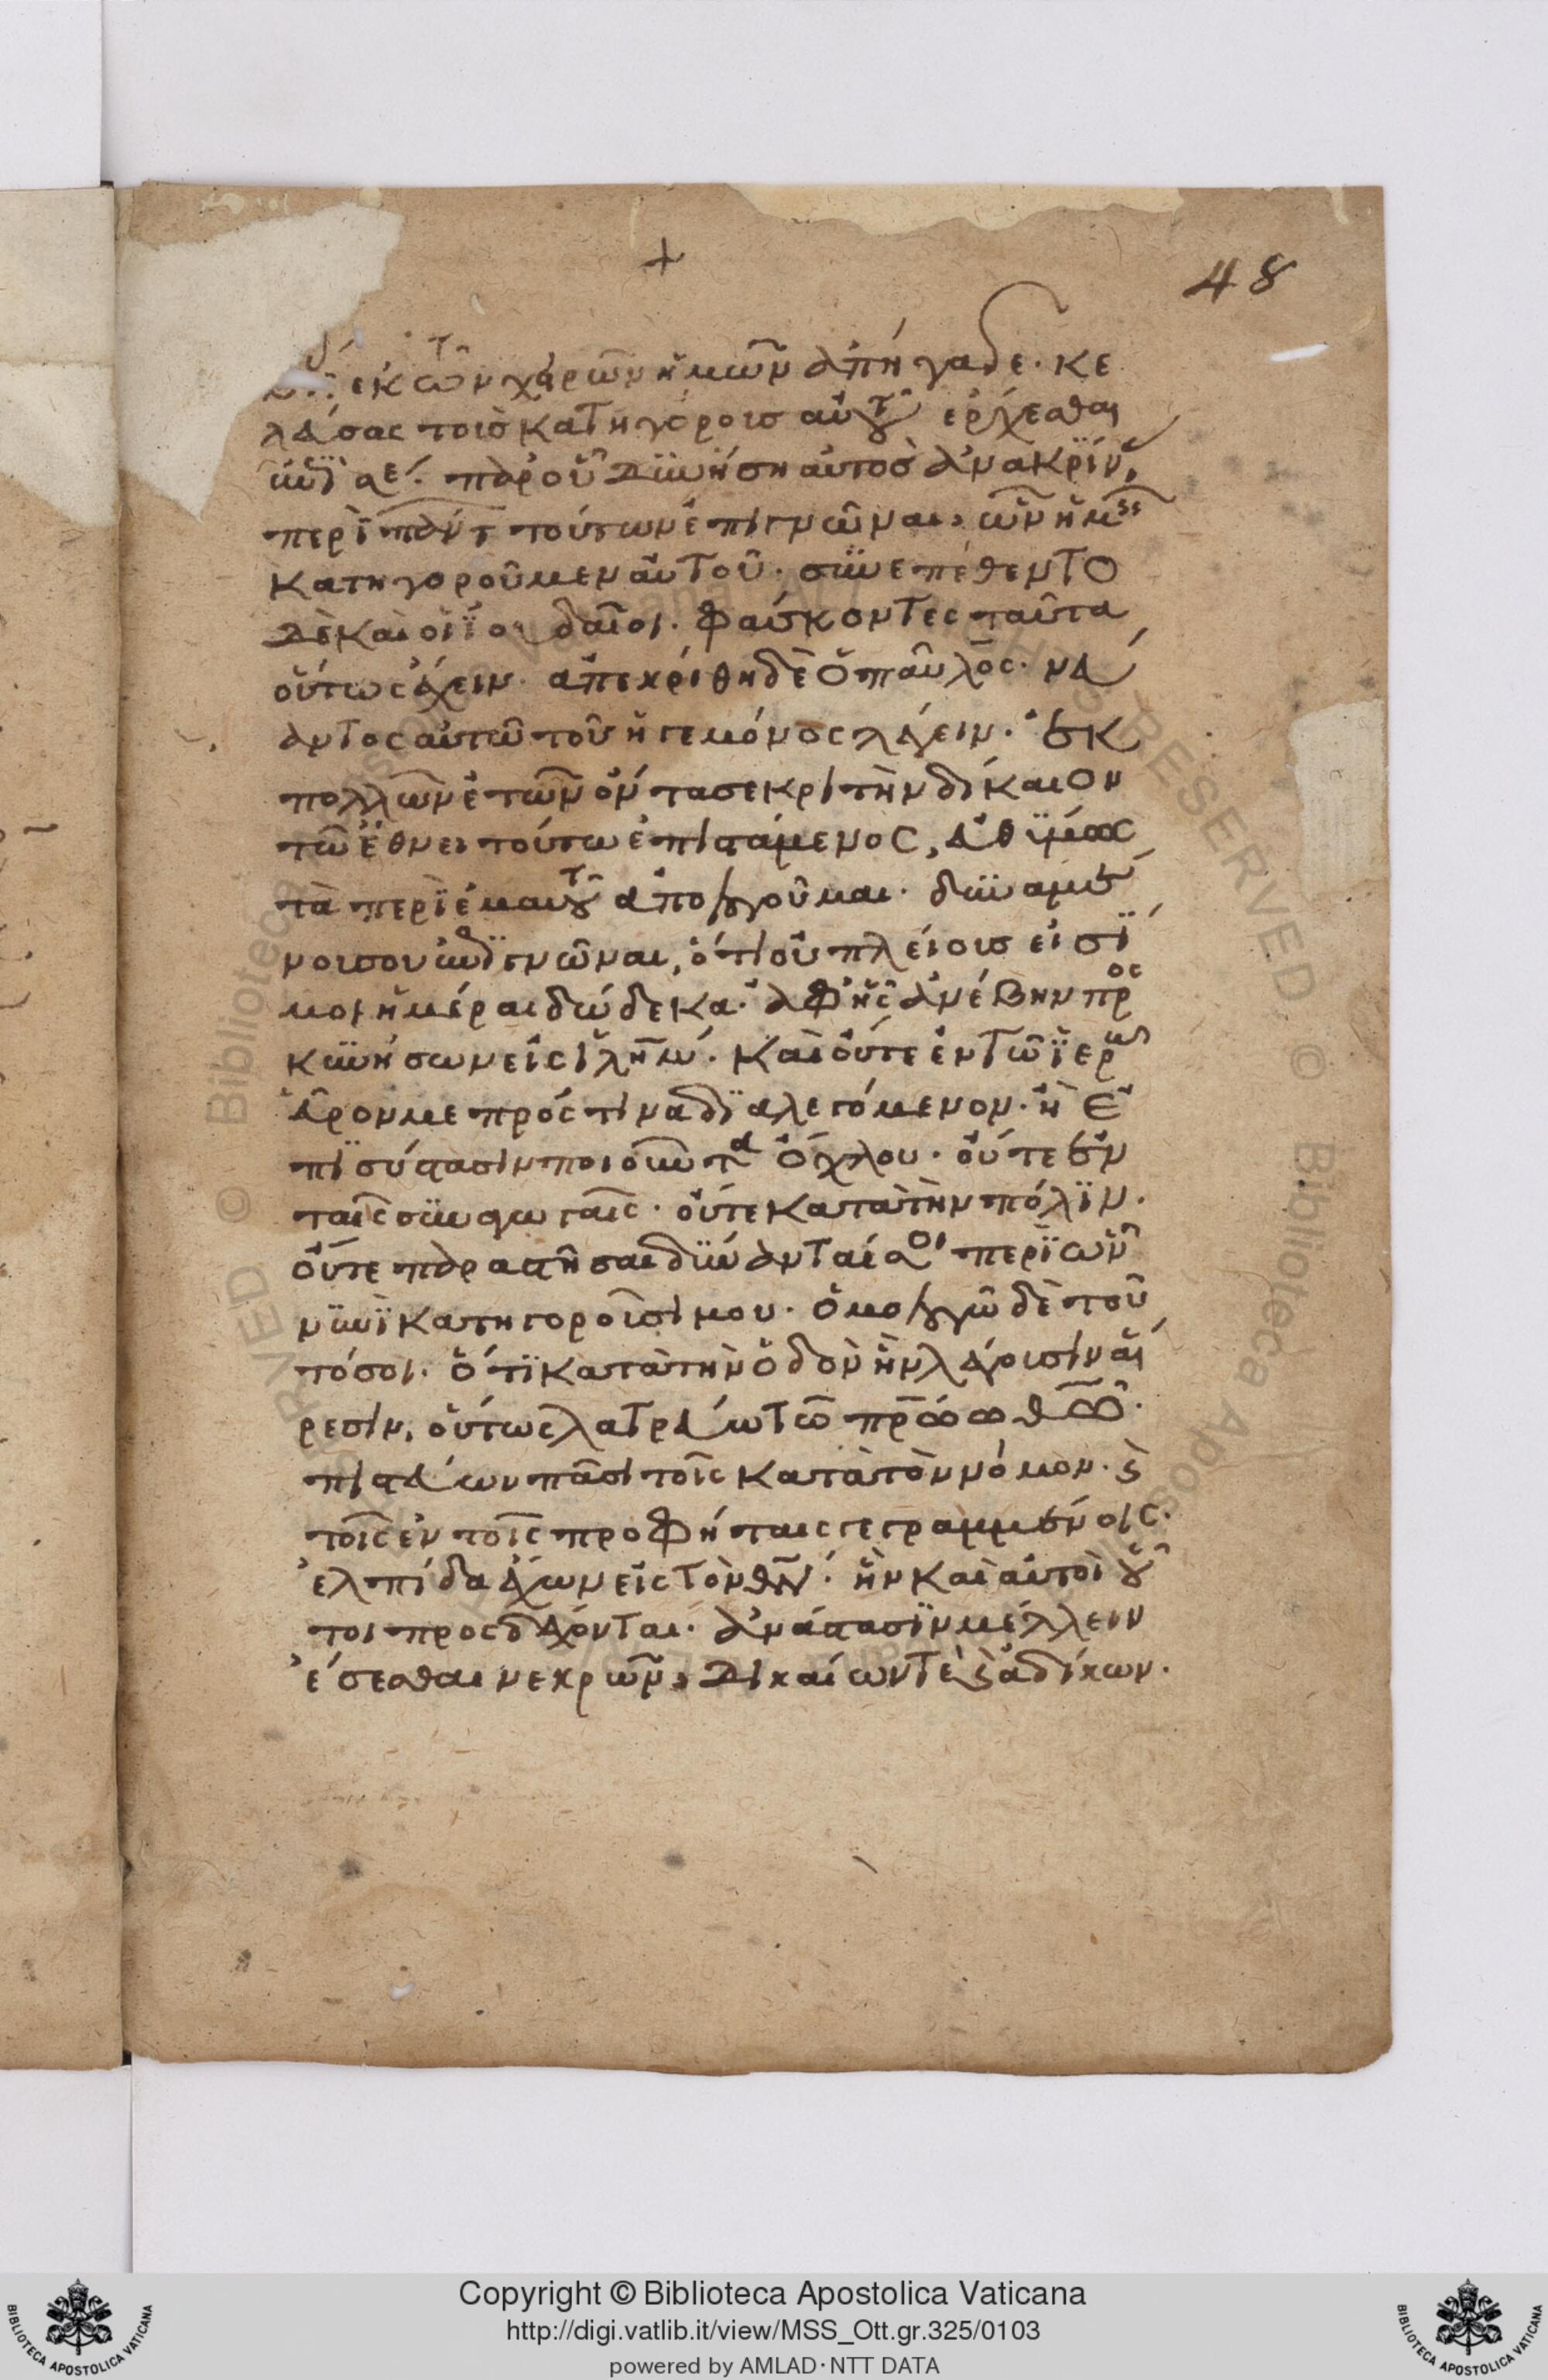 +
48
ἐκ τῶν χειρῶν ἡμῶν ἀπήγαγε. κε
λεύσας τοῖς κατηγόροις αὐτοῦ ἔρχεσθαι
ἐπί σε. παρ' οὗ δυνήση αὐτὸς ἀνακρίνας
περὶ πάντων τούτων ἐπιγνῶναι, ὧν ἡμεῖς
κατηγοροῦμεν αὐτοῦ. συνεπέθεντο
δὲ καὶ οἱ ἰουδαῖοι. φάσκοντες ταῦτα
οὕτως ἔχειν. ἀπεκρίθη δὲ ὁ παῦλος. νεύ
σαντος αὐτῶ τοῦ ἡγεμόνος λέγειν. ἐκ
πολλῶν ἐτῶν ὄντα σε κριτὴν δίκαιον
τῶ ἔθνει τούτω ἐπιστάμενος, εὐθύμως
τὰ περὶ ἐμαυτοῦ ἀπολογοῦμαι. δυναμέ
νου σου ἐπιγνῶναι, ὅτι οὐ πλείους εἰσί
μοι ἡμέραι δώδεκα. ἀφ' ἧς ἀνέβην προσ
κυνήσων εἰς ἱλημ. καὶ οὔτε ἐν τῶ ἱερῶ
εὗρόν με πρός τινα διαλεγόμενον. ἢ ἐ
πισύστασιν ποιοῦντα ὄχλου. οὔτε ἐν
ταῖς συναγωγαῖς. οὔτε κατὰ τὴν πόλιν.
οὔτε παραστῆσαι δύνανταί σοι περὶ ὧν
νυνὶ κατηγοροῦσί μου. ὁμολογῶ δὲ τοῦ
τό σοι. ὅτι κατὰ τὴν ὁδὸν ἣν λέγουσιν αἵ
ρεσιν, οὕτως λατρεύω τῶ πρώω θῶ.
πιστεύων πᾶσι τοῖς κατὰ τὸν νόμον. καὶ
τοῖς ἐν τοῖς προφήταις γεγραμμένοις.
ἐλπίδα ἔχων εἰς τὸν θν. ἣν καὶ αὐτοὶ οὗ
τοι προσδέχονται. ἀνάστασιν μέλλειν
ἔσεσθαι νεκρῶν, δικαίων τε καὶ ἀδίκων.
Copyright © Biblioteca Apostolica Vaticana
http://digi.vatlib.it/view/MSS_Ott.gr.325/0103
powered by AMLAD·NTT DATA
BIBLIOTECA APOSTOLICA VATICANA
BIBLIOTECA APOSTOLICA VATICANA